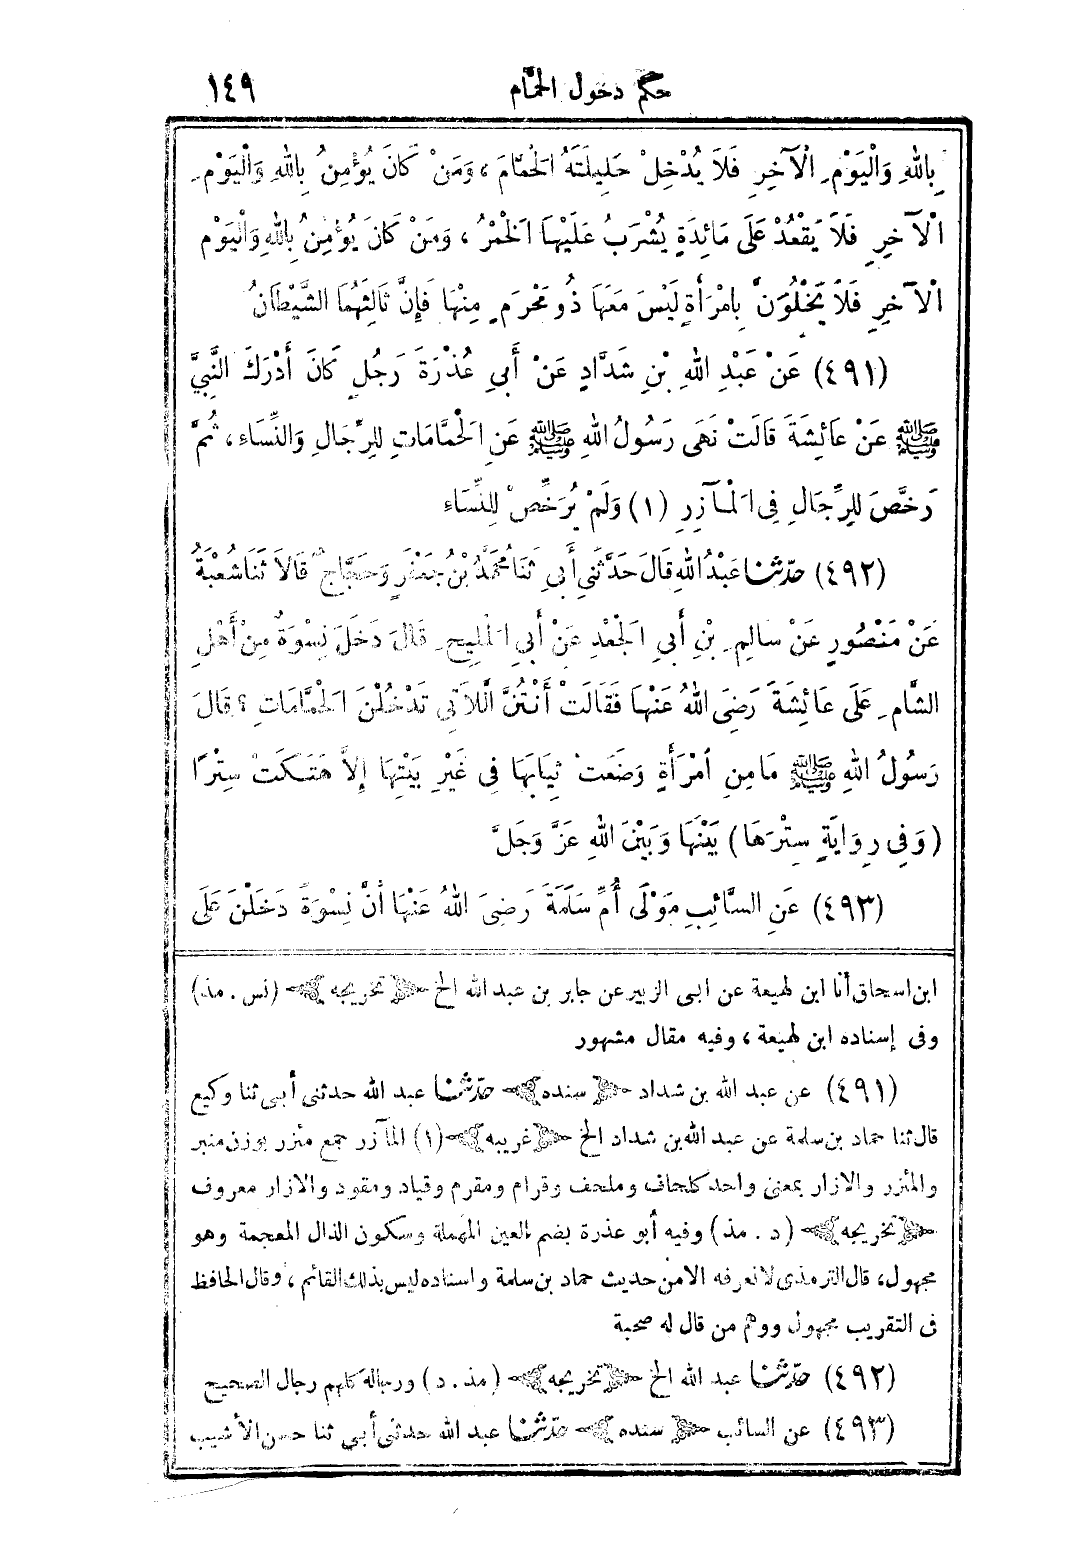 حكم دخول الحمَّام ١٤٩
بِاللهِ وَالْيَوْمِ الْآخِرِ فَلَا يُدْخِلْ حَلِيلَتَهُ الْحَمَّامَ ، وَمَنْ كَانَ يُؤْمِنُ بِاللهِ وَالْيَوْمِ
الْآخِرِ فَلَا يَقْعُدْ عَلَى مَائِدَةٍ يُشْرَبُ عَلَيْهَا الْخَمْرُ ، وَمَنْ كَانَ يُؤْمِنُ بِاللهِ وَالْيَوْمِ
الْآخِرِ فَلَا يَخْلُوَنَّ بِامْرَأَةٍ لَيْسَ مَعَهَا ذُو مَحْرَمٍ مِنْهَا فَإِنَّ ثَالِثَهُمَا الشَّيْطَانُ
(٤٩١) عَنْ عَبْدِ اللهِ بْنِ شَدَّادٍ عَنْ أَبِي عُذْرَةَ رَجُلٍ كَانَ أَدْرَكَ النَّبِيَّ
ﷺ عَنْ عَائِشَةَ قَالَتْ نَهَى رَسُولُ اللهِ ﷺ عَنِ الْحَمَّامَاتِ لِلرِّجَالِ وَالنِّسَاءِ ، ثُمَّ
رَخَّصَ لِلرِّجَالِ فِي الْمَآزِرِ (١) وَلَمْ يُرَخِّصْ لِلنِّسَاءِ
(٤٩٢) حَدَّثَنَا عَبْدُ اللهِ قَالَ حَدَّثَنِي أَبِي ثَنَا مُحَمَّدُ بْنُ جَعْفَرٍ وَحَجَّاجٌ قَالَا ثَنَا شُعْبَةُ
عَنْ مَنْصُورٍ عَنْ سَالِمِ بْنِ أَبِي الْجَعْدِ عَنْ أَبِي الْمَلِيحِ قَالَ دَخَلَ نِسْوَةٌ مِنْ أَهْلِ
الشَّامِ عَلَى عَائِشَةَ رَضِيَ اللهُ عَنْهَا فَقَالَتْ أَنْتُنَّ اللَّاتِي تَدْخُلْنَ الْحَمَّامَاتِ ؟ قَالَ
رَسُولُ اللهِ ﷺ مَا مِنِ امْرَأَةٍ وَضَعَتْ ثِيَابَهَا فِي غَيْرِ بَيْتِهَا إِلَّا هَتَكَتْ سِتْرًا
(وَفِي رِوَايَةٍ سِتْرَهَا) بَيْنَهَا وَبَيْنَ اللهِ عَزَّ وَجَلَّ
(٤٩٣) عَنِ السَّائِبِ مَوْلَى أُمِّ سَلَمَةَ رَضِيَ اللهُ عَنْهَا أَنَّ نِسْوَةً دَخَلْنَ عَلَى
ابن اسحاق أنا ابن لهيعة عن ابى الزبير عن جابر بن عبد الله الخ ﴿تخريجه﴾ (نس . مذ)
وفى إسناده ابن لهيعة ، وفيه مقال مشهور
(٤٩١) عن عبد الله بن شداد ﴿سنده﴾ حدّثنا عبد الله حدثنى أبى ثنا وكيع
قال ثنا حماد بن سلمة عن عبد الله بن شداد الخ ﴿غريبه﴾ (١) المآزر جمع مئزر بوزن منبر
والمئزر والازار بمعنى واحد كلحاف وملحف وقرام ومقرم وقياد ومقود والازار معروف
﴿تخريجه﴾ (د . مذ) وفيه أبو عذرة بضم العين المهملة وسكون الذال المعجمة وهو
مجهول ، قال الترمذى لا نعرفه الا من حديث حماد بن سلمة واسناده ليس بذلك القائم ، وقال الحافظ
فى التقريب مجهول ووهم من قال له صحبة
(٤٩٢) حدّثنا عبد الله الخ ﴿تخريجه﴾ (مذ . د) ورجاله كلهم رجال الصحيح
(٤٩٣) عن السائب ﴿سنده﴾ حدّثنا عبد الله حدثنى أبى ثنا حسن الأشيب